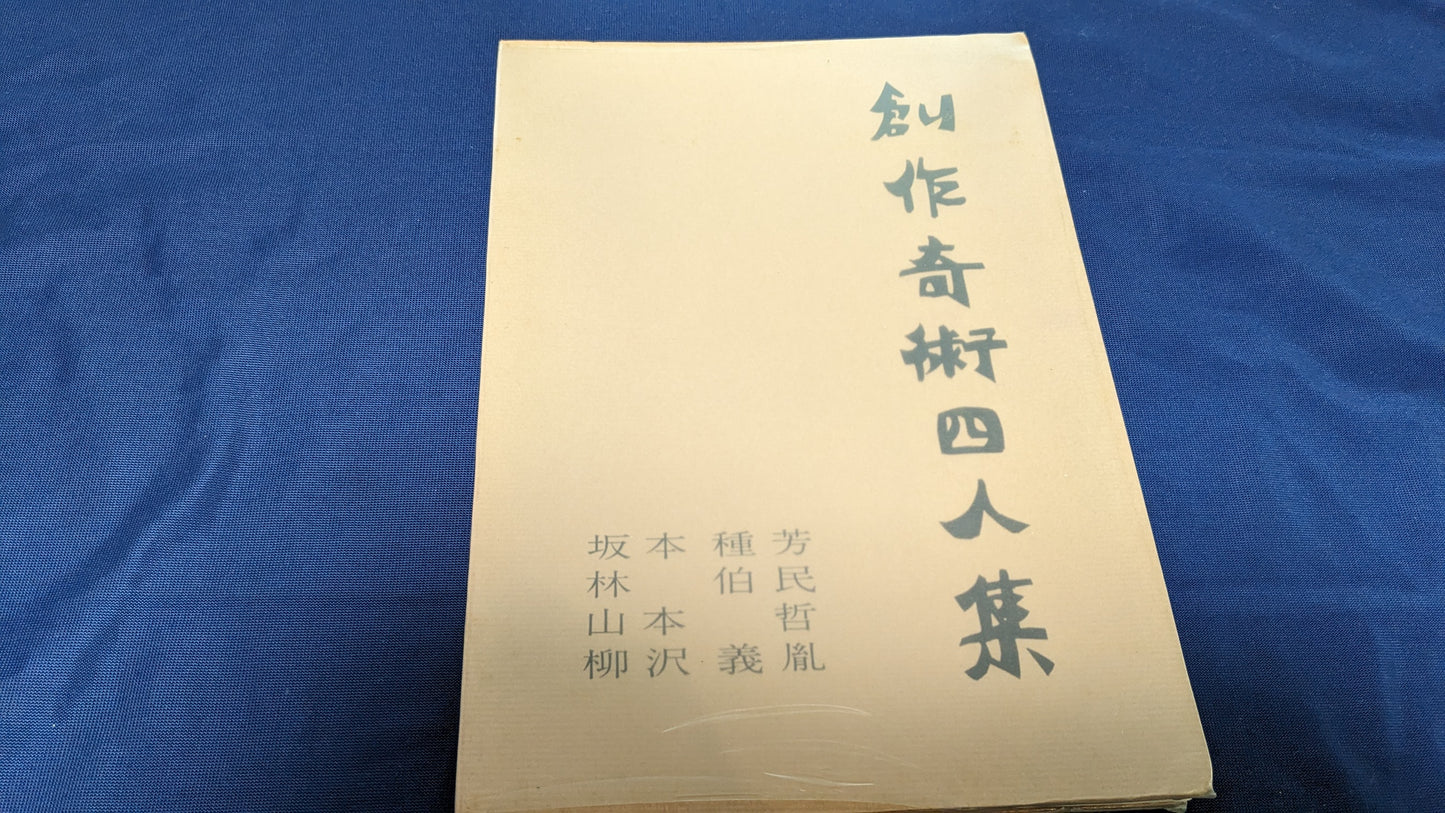 創作奇術四人集
坂本種芳
林伯民
山本哲
柳沢義胤